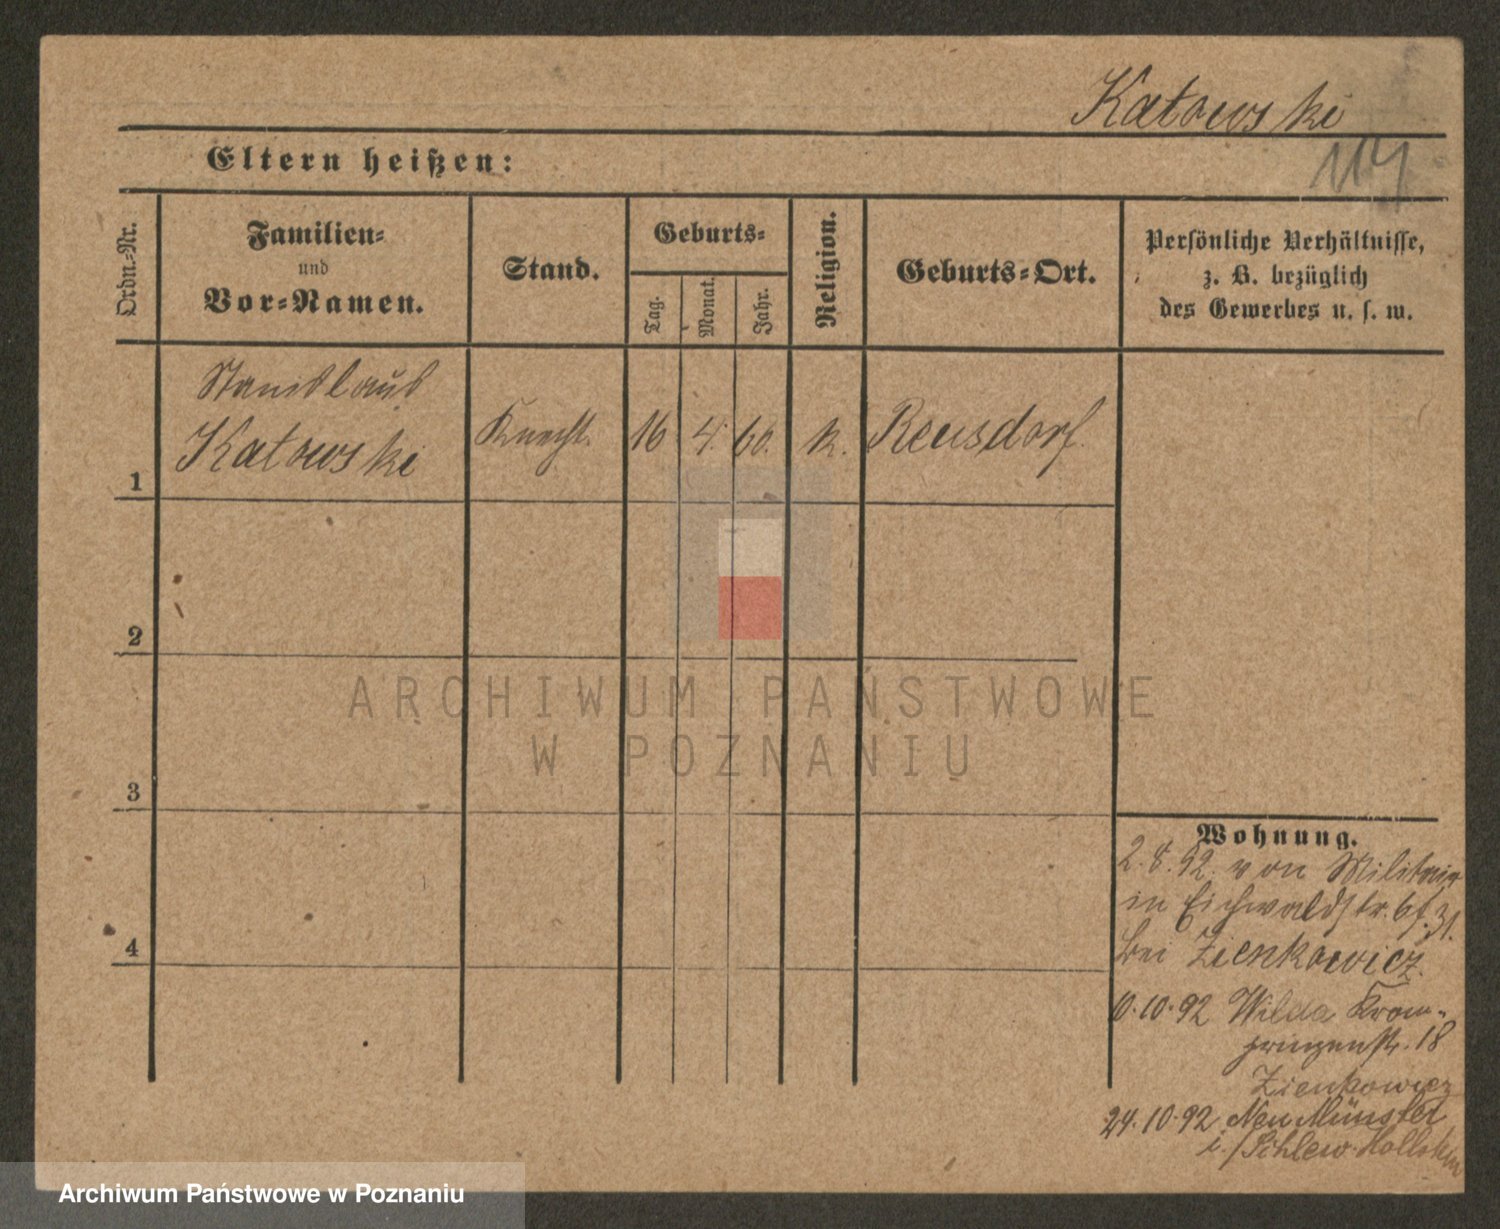 Katowski
114
Eltern heißen:
Ordn.-Nr.
Familien-
und
Vor-Namen.
Stand.
Geburts-
Tag.
Monat.
Jahr.
Religion.
Geburts-Ort.
Persönliche Verhältnisse,
z. B. bezüglich
des Gewerbes u. s. w.
1
Stanislaus
Katowski
Knecht.
16
4.
60.
k.
Reusdorf.
2
3
4
Wohnung.
2.8.92. von Militair
in Eichwaldstr.
bei Zienkowicz.
10.10.92 Wilda Kron-
prinzenstr. 18
Zienkowicz
24.10.92 Neu Münster
i./Schlew. Hollstein
ARCHIWUM PAŃSTWOWE
W POZNANIU
Archiwum Państwowe w Poznaniu